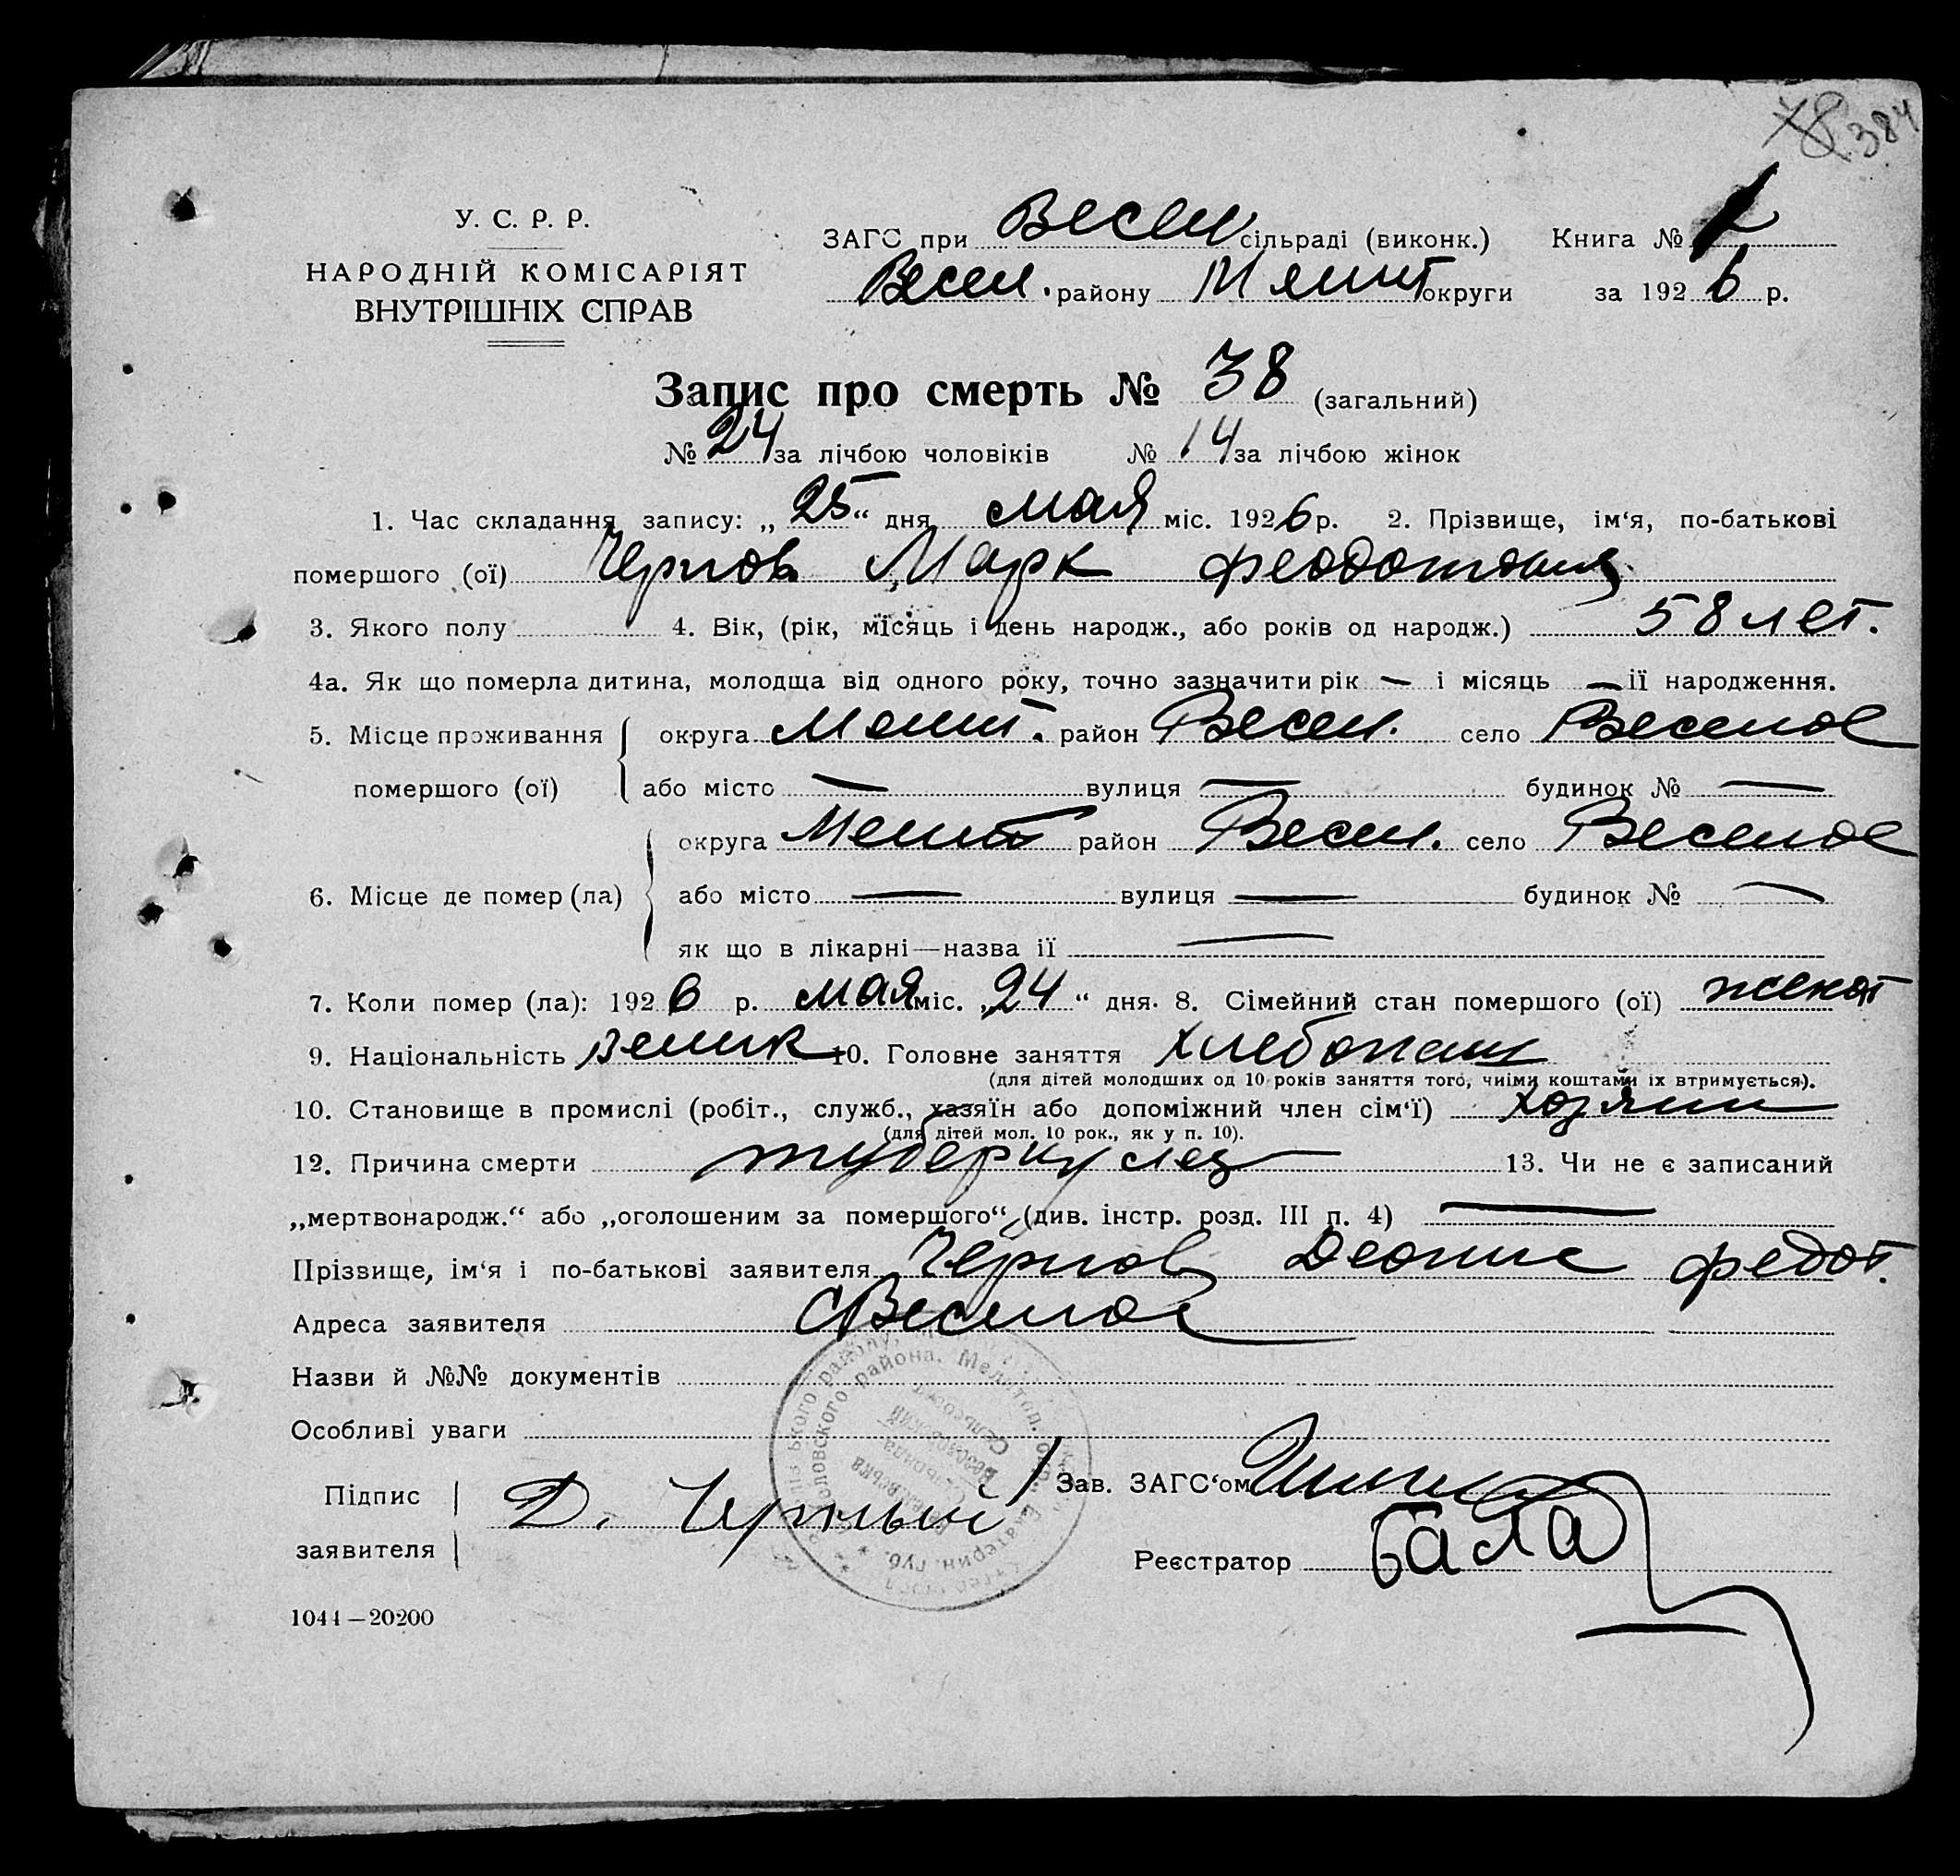 384
У. С. Р. Р.
НАРОДНІЙ КОМІСАРІЯТ
ВНУТРІШНІХ СПРАВ
ЗАГС при Весел сільраді (виконк.) Книга №
Весел. району Мелит округи за 1926 р.
Запис про смерть № 38 (загальний)
№ 24 за лічбою чоловіків № 14 за лічбою жінок
1. Час складання запису: „25“ дня мая міс. 1926 р. 2. Прізвище, ім‘я, по-батькові
помершого (ої) Чернов Марк Феодотович
3. Якого полу 4. Вік, (рік, місяць і день народж., або років од народж.) 58 лет.
4а. Як що померла дитина, молодща від одного року, точно зазначити рік — і місяць — її народження.
5. Місце проживання округа Мелит. район Весел. село Веселое
помершого (ої) або місто — вулиця — будинок № —
округа Мелит район Весел. село Веселое
6. Місце де помер (ла) або місто — вулиця — будинок № —
як що в лікарні—назва ії —
7. Коли помер (ла): 1926 р. мая міс. „24“ дня. 8. Сімейний стан помершого (ої) женат
9. Національність велик 10. Головне заняття хлебопаш
(для дітей молодших од 10 років заняття того, чиїми коштами їх втримується).
10. Становище в промислі (робіт., служб., хазяїн або допоміжний член сім‘ї) хозяин
(для дітей мол. 10 рок., як у п. 10).
12. Причина смерти туберкулез 13. Чи не є записаний
„мертвонародж.“ або „оголошеним за помершого“ (див. інстр. розд. III п. 4) —
Прізвище, ім‘я і по-батькові заявителя Чернов Деонис Федот.
Адреса заявителя с Веселое
Назви й №№ документів
Особливі уваги
Підпис
заявителя
Д. Черный
Зав. ЗАГС‘ом
Реєстратор Бала
Веселовского района. Мелитоп. окр. Екатерин. губ.
Сельсовет
1044—20200